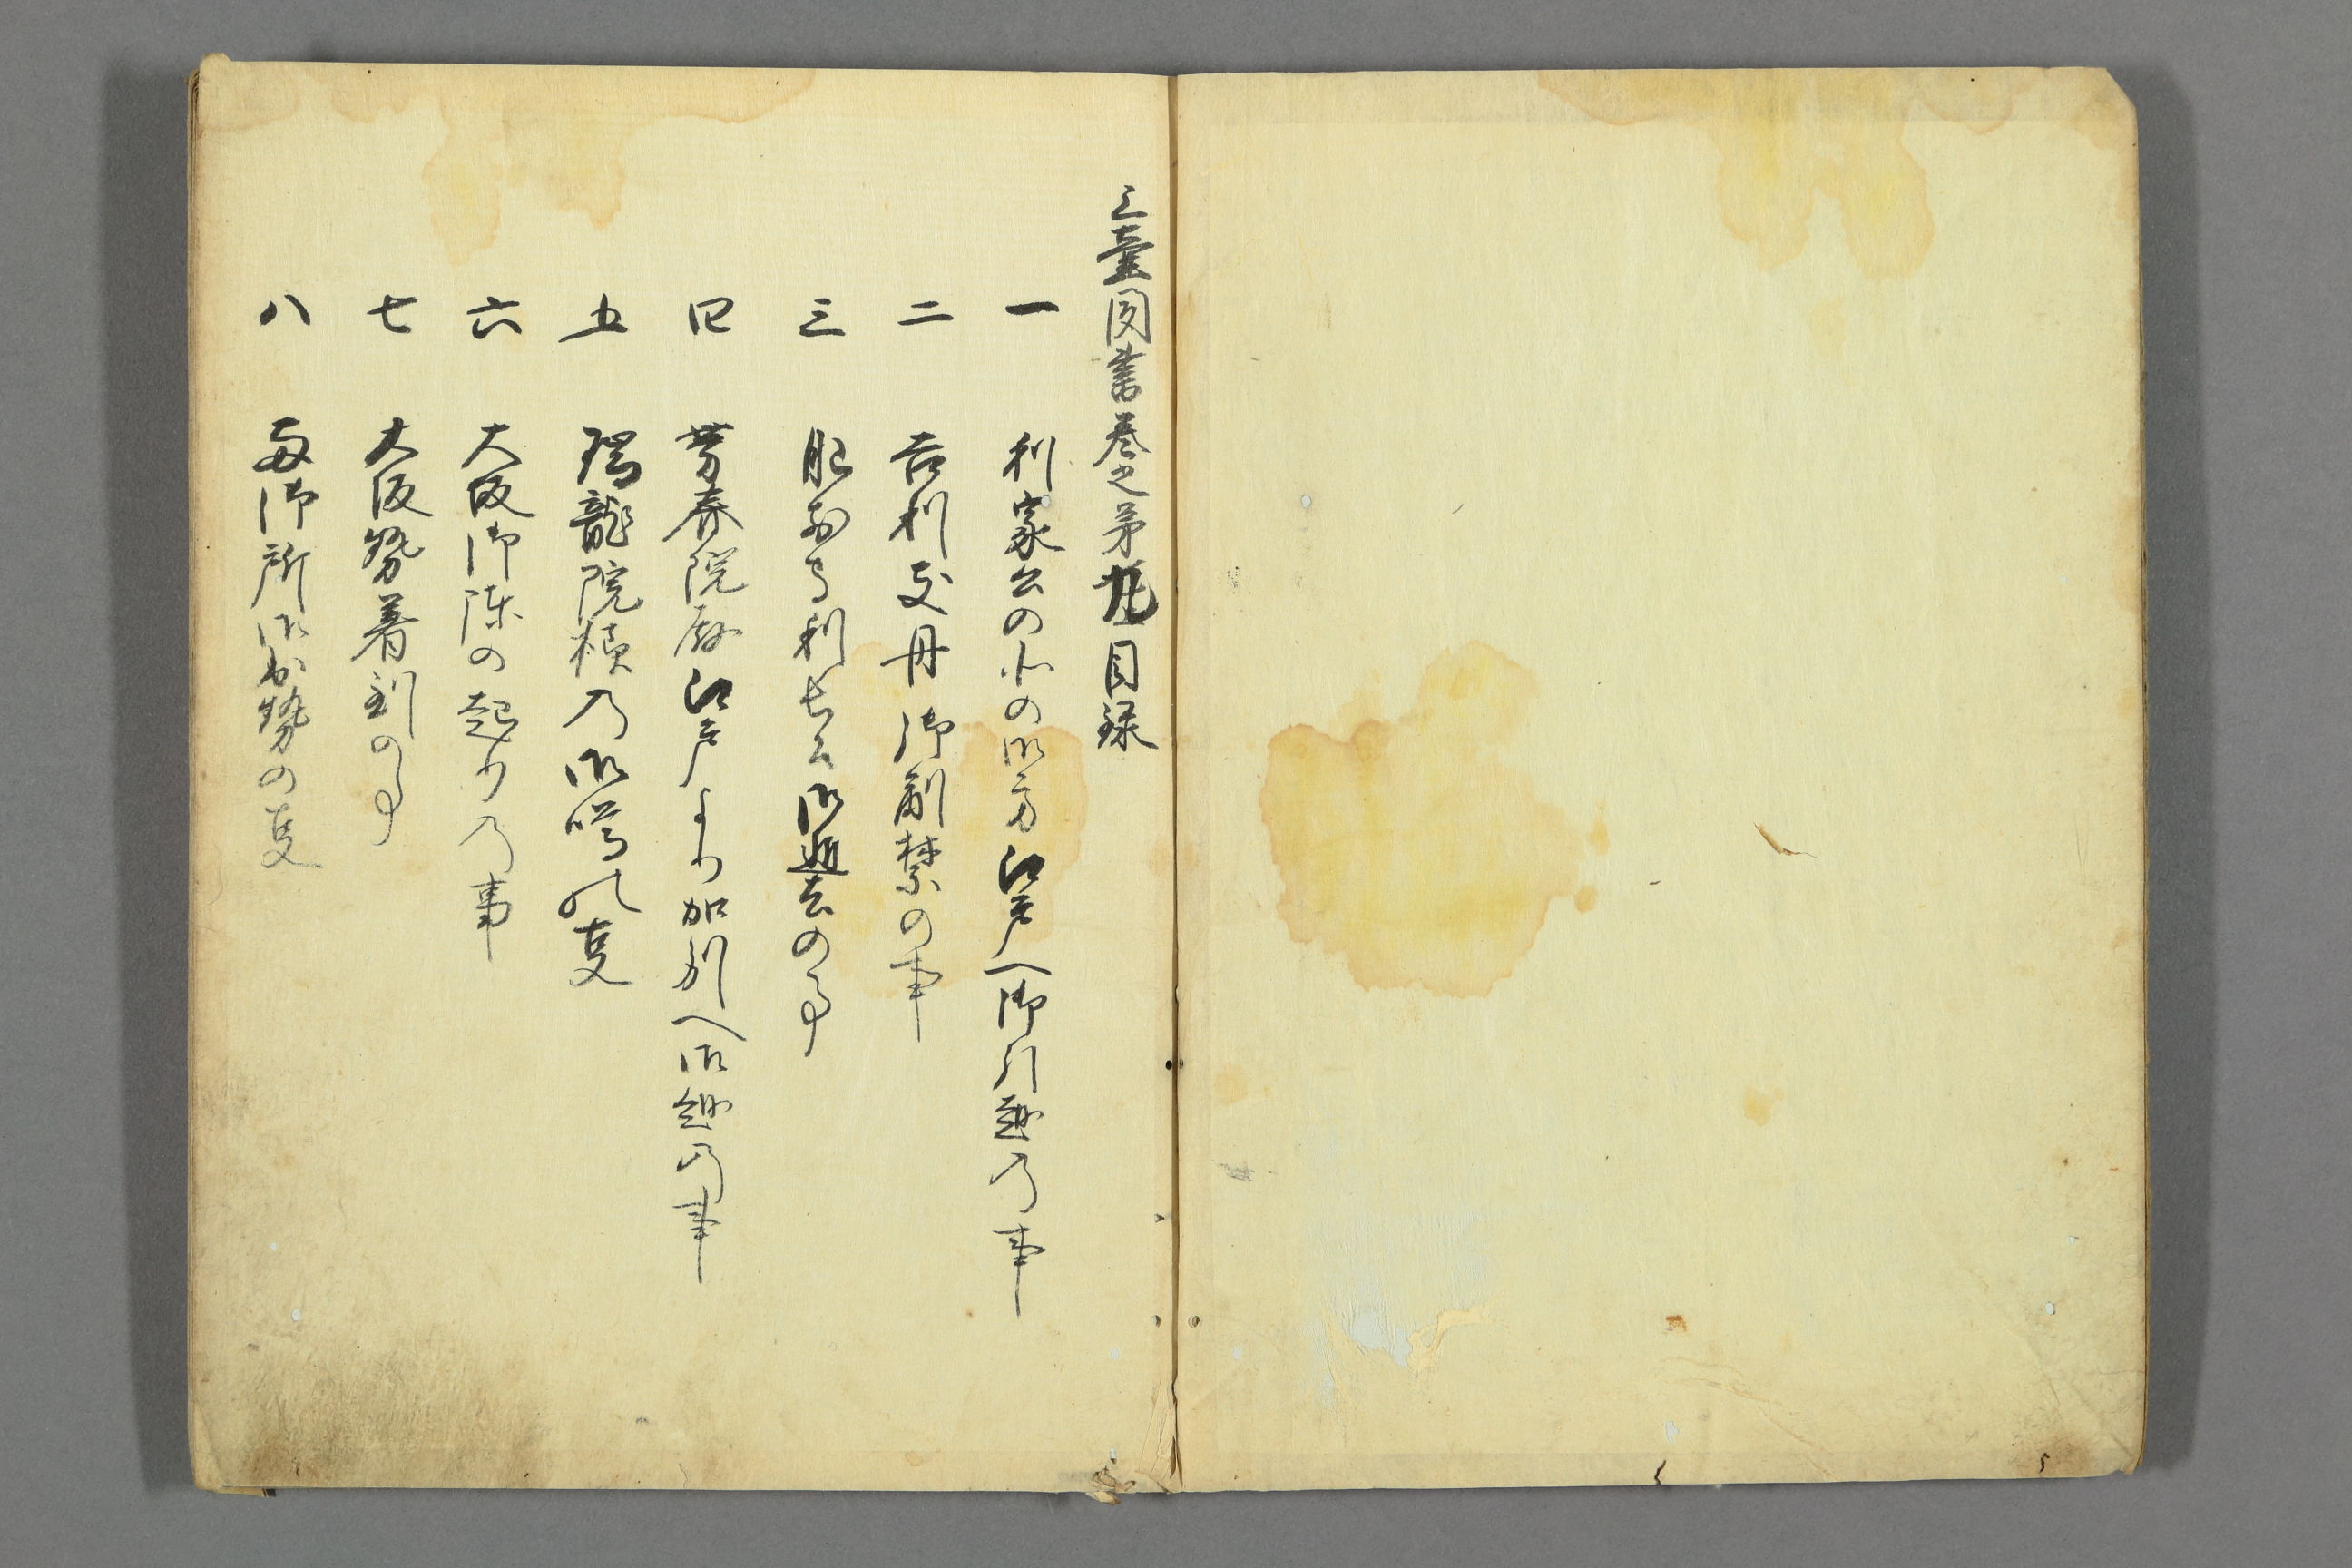 三壷聞書巻之第九目録
一 利家公の北の御方江戸へ御引越乃事
二 吉利支丹御制禁の事
三 肥前守利長公御逝去の事
四 芳春院殿江戸より加州へ御越乃事
五 瑞龍院様乃御噂の叓
六 大坂御陳の起り乃事
七 大坂勢着到の事
八 両御所御出勢の叓